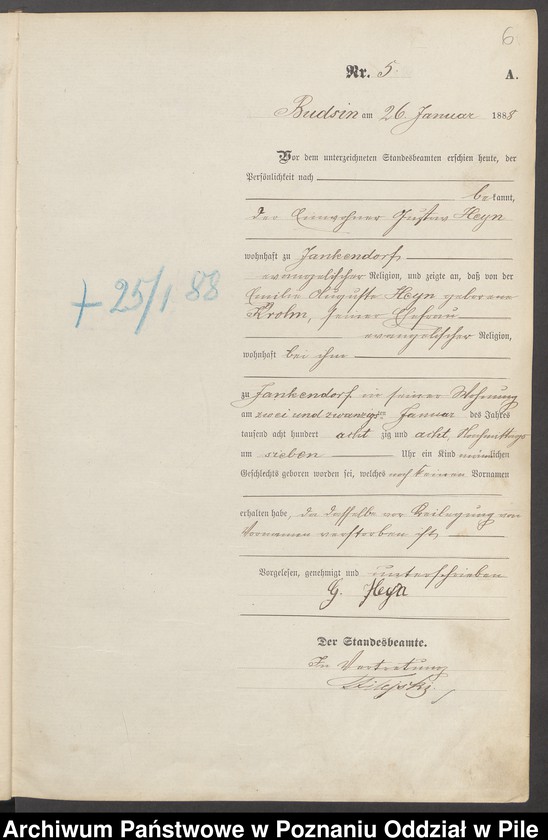 6
Nr. 5. A.
Budsin am 26 Januar 1888
Vor dem unterzeichneten Standesbeamten erschien heute, der
Persönlichkeit nach
bekannt,
der Einwohner Gustav Heyn
wohnhaft zu Jankendorf
evangelischer Religion, und zeigte an, daß von der
Emilie Auguste Heyn geborene
Krohn, seiner Ehefrau
evangelischer Religion,
wohnhaft bei ihm
zu Jankendorf in seiner Wohnung
am zwei und zwanzigsten Januar des Jahres
tausend acht hundert acht zig und acht, Nachmittags
um sieben Uhr ein Kind männlichen
Geschlechts geboren worden sei, welches noch keinen Vornamen
erhalten habe, da dasselbe vor Beilegung von
Vornamen verstorben ist
+ 25/1 88
Vorgelesen, genehmigt und unterschrieben
G. Heyn
Der Standesbeamte.
In Vertretung
Archiwum Państwowe w Poznaniu Oddział w Pile